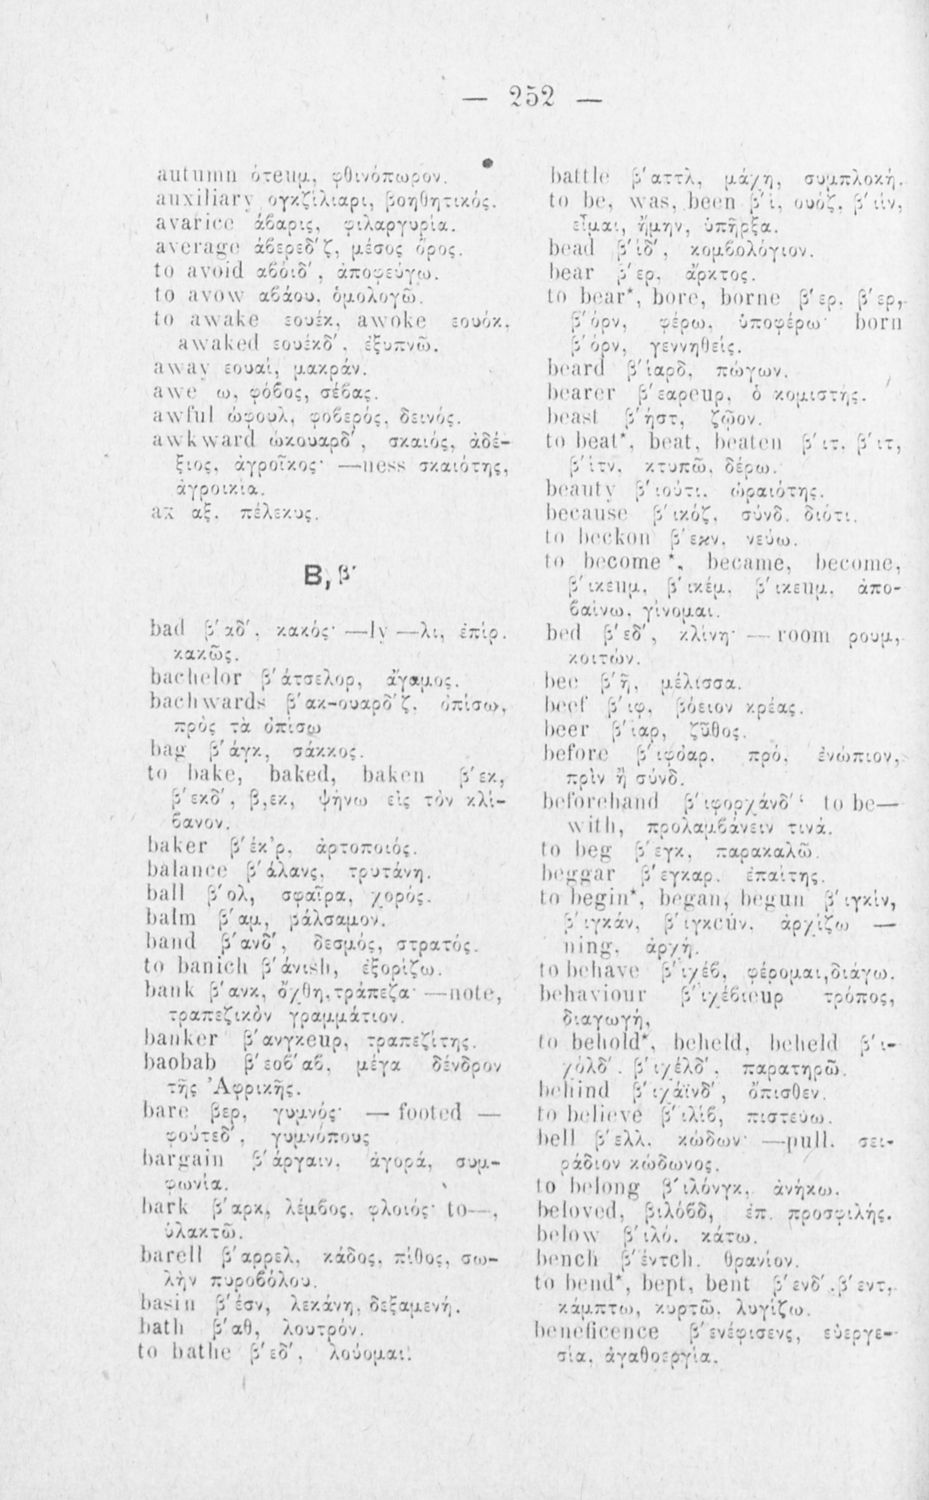 — 252 —
autumn ότeuμ, φθινόπωρον.
auxiliary ογκζίλιαρι, βοηθητικός.
avarice άβαρις, φιλαργυρία.
average άβερεδ'ζ, μέσος ὅρος.
to avoid αβόιδ', ἀποφεύγω.
to avow αβάου, ὁμολογῶ.
to awake εουέκ, awoke εουόκ,
awaked εουέκδ', ἐξυπνῶ.
away εουαί, μακράν.
awe ω, φόβος, σέβας.
awful ώφουλ, φοβερός, δεινός.
awkward ώκουαρδ', σκαιός, ἀδέ-
ξιος, ἀγροῖκος· —ness σκαιότης,
ἀγροικία.
ax αξ, πέλεκυς.
B, β'
bad β'αδ', κακός· —ly —λι, ἐπίρ.
κακῶς.
bachelor β'άτσελορ, ἄγαμος.
bachwards β'ακ-ουαρδ'ζ, ὀπίσω,
πρὸς τὰ ὀπίσω
bag β'άγκ, σάκκος.
to bake, baked, baken β'εκ,
β'εκδ', β,εκ, ψήνω εἰς τὸν κλί-
βανον.
baker β'έκ'ρ, ἀρτοποιός.
balance β'άλανς, τρυτάνη.
ball β'ολ, σφαῖρα, χορός.
balm β'αμ, βάλσαμον.
band β'ανδ', δεσμός, στρατός.
to banich β'άνish, ἐξορίζω.
bank β'ανκ, ὄχθη,τράπεζα· —note,
τραπεζικὸν γραμμάτιον.
banker β'ανγκeuρ, τραπεζίτης.
baobab β'εοβ'αβ, μέγα δένδρον
τῆς Ἀφρικῆς.
bare βερ, γυμνός· — footed —
φούτεδ', γυμνόπους
bargain β'άργαιν, ἀγορά, συμ-
φωνία.
bark β'αρκ, λέμβος, φλοιός· to—,
ὑλακτῶ.
barell β'αρρελ, κάδος, πίθος, σω-
λὴν πυροβόλου.
basin β'έσν, λεκάνη, δεξαμενή.
bath β'αθ, λουτρόν.
to bathe β'εδ', λούομαι.
battle β'αττλ, μάχη, συμπλοκή.
to be, was, been β'ι, ουόζ, β'ιίν,
εἶμαι, ἤμην, ὑπῆρξα.
bead β'ίδ', κομβολόγιον.
bear β'ερ, ἄρκτος.
to bear*, bore, borne β'ερ, β'ερ,
β'όρν, φέρω, ὑποφέρω· born
β'όρν, γεννηθείς.
beard β'ίαρδ, πώγων.
bearer β'εαρeuρ, ὁ κομιστής.
beast β'ήστ, ζῷον.
to beat*, beat, beaten β'ιτ, β'ιτ,
β'ίτν, κτυπῶ, δέρω.
beauty β'ιούτι, ὡραιότης.
because β'ικόζ, σύνδ. διότι.
to beckon β'εκν, νεύω.
to become *, became, become,
β'ικeuμ, β'ικέμ, β'ικeuμ, ἀπο-
βαίνω, γίνομαι.
bed β'εδ', κλίνη· —room ρουμ,
κοιτών.
bee β'ῆ, μέλισσα.
beef β'ιφ, βόειον κρέας.
beer β'ίαρ, ζῦθος.
before β'ιφόαρ, πρό, ἐνώπιον,
πρὶν ἢ σύνδ.
beforehand β'ιφορχάνδ'· to be—
with, προλαμβάνειν τινά.
to beg β'εγκ, παρακαλῶ.
beggar β'εγκαρ, ἐπαίτης.
to begin*, began, begun β'ιγκίν,
β'ιγκάν, β'ιγκeúν, ἀρχίζω —
ning, ἀρχή.
to behave β'ιχέβ, φέρομαι,διάγω.
behaviour β'ιχέβιeuρ τρόπος,
διαγωγή,
to behold*, beheld, beheld β'ι-
χόλδ', β'ιχέλδ', παρατηρῶ.
behind β'ιχάϊνδ', ὄπισθεν.
to believe β'ιλίβ, πιστεύω.
bell β'ελλ, κώδων· —pull, σει-
ράδιον κώδωνος.
to belong β'ιλόνγκ, ἀνήκω.
beloved, βιλόβδ, ἐπ. προσφιλής.
below β'ιλό, κάτω.
bench β'έντch, θρανίον.
to bend*, bept, bent β'ενδ',β'εντ,
κάμπτω, κυρτῶ, λυγίζω.
beneficence β'ενέφισενς, εὐεργε-
σία, ἀγαθοεργία.